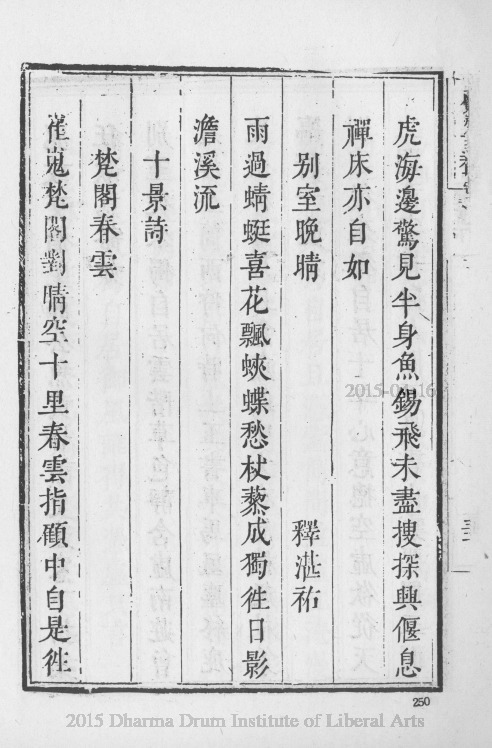 虎海邊驚見半身魚錫飛未盡搜探興偃息
禪床亦自如
別室晚晴 釋湛祐
雨過蜻蜓喜花飄蛺蝶愁杖藜成獨徃日影
澹溪流
十景詩
梵閣春雲
崔嵬梵閣剳晴空十里春雲指顧中自是徃
250
2015 Dharma Drum Institute of Liberal Arts